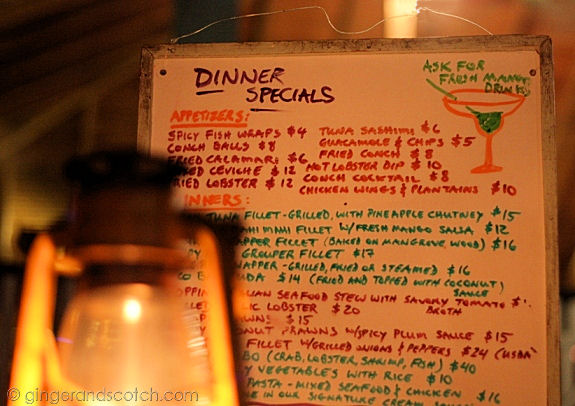 DINNER
SPECIALS
ASK FOR
FRESH MANGO
DRINKS
APPETIZERS:
SPICY FISH WRAPS $4
CONCH BALLS $8
FRIED CALAMARI $6
CEVICHE $12
FRIED LOBSTER $12
TUNA SASHIMI $6
GUACAMOLE & CHIPS $5
FRIED CONCH $8
HOT LOBSTER DIP $10
CONCH COCKTAIL $8
CHICKEN WINGS & PLANTAINS $10
TUNA FILLET - GRILLED, WITH PINEAPPLE CHUTNEY $15
MAHI FILLET W/FRESH MANGO SALSA $12
FILLET (BAKED ON MANGROVE WOOD) $16
GROUPER FILLET $17
- GRILLED, FRIED OR STEAMED $16
$14 (FRIED AND TOPPED WITH COCONUT)
SAUCE
SEAFOOD STEW WITH SAVORY TOMATO
BROTH
LOBSTER $20
$15
PRAWNS W/SPICY PLUM SAUCE $15
FILLET W/GRILLED ONIONS & PEPPERS $24 (USDA
(CRAB, LOBSTER, SHRIMP, FISH) $40
VEGETABLES WITH RICE $10
PASTA - MIXED SEAFOOD & CHICKEN $16
IN OUR SIGNATURE CREAM
© gingerandscotch.com